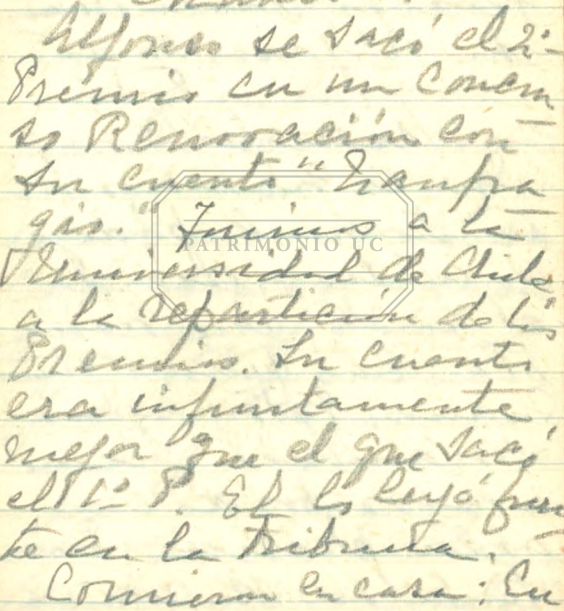 Alfonso se sacó el 2º
Premio en un Concur
so Renovación con
su cuento "Naufra
gio." Fuimos a la
PATRIMONIO UC
Universidad de Chile
a la repartición de los
Premios. Su cuento
era infinitamente
mejor que el que sacó
el 1º P. El lo leyó fuer
te en la Tribuna.
Comieron en casa: Eu